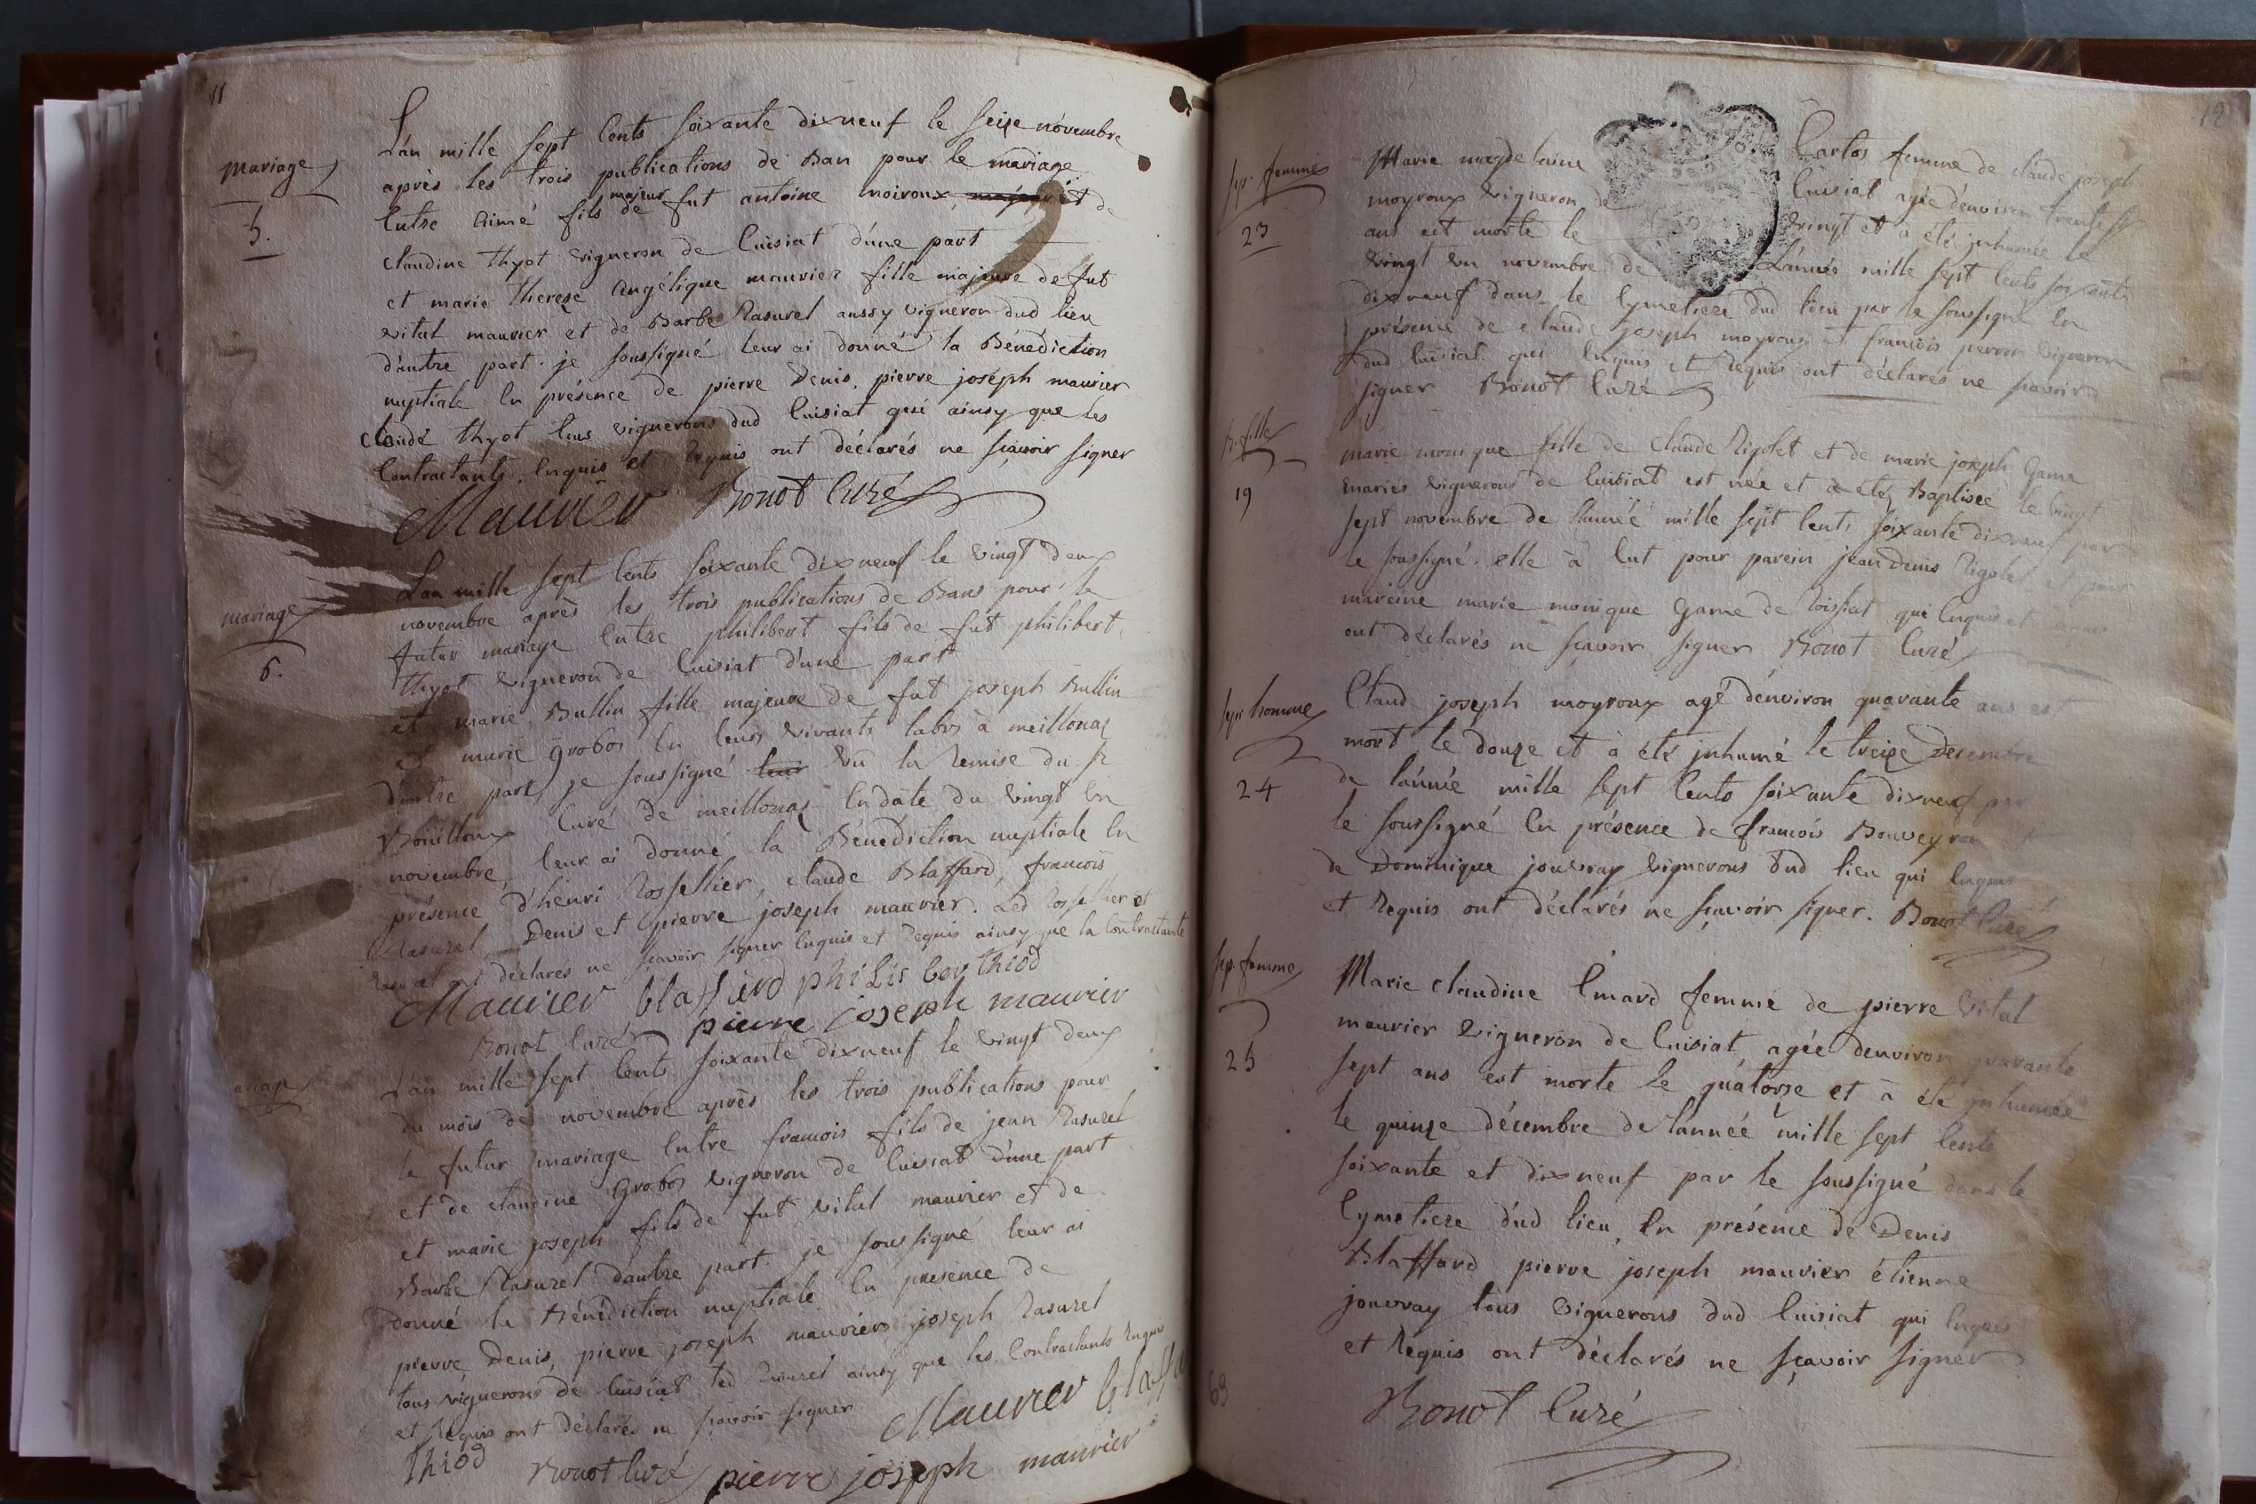 11
L'an mille sept cents soixante dixneuf le seize novembre
mariage
après les trois publications de Ban pour le mariage
5.
entre aimé fils majeur de fut antoine moiroux et de
claudine thyot vigneron de Cuisiat d'une part
et marie therese angélique maurier fille majeure de fut
vital maurier et de Barbe Rasurel aussy vigneron dud lieu
d'autre part. je soussigné leur ai donné la Bénédiction
nuptiale en présence de pierre Denis, pierre joseph maurier
claude thyot tous vignerons dud Cuisiat qui ainsy que les
Contractants enquis et Requis ont déclarés ne sçavoir signer
Maurier Bonot Curé
L'an mille sept cents soixante dixneuf le vingt deux
mariage
novembre après les trois publications de Bans pour le
6.
futur mariage entre philibert fils de fut philibert
thyot vigneron de Cuisiat d'une part
et marie Bullin fille majeure de fut joseph Bullin
et marie Grobos en leurs vivants labrs à meillonaz
d'autre part, je soussigné leur vû la Remise du sr
Bouilloux Curé de meillonaz en date du vingt un
novembre, leur ai donné la Bénédiction nuptiale en
présence d'henri Rossellier, claude Blaffard, francois
Rasurel Denis et pierre joseph maurier. Led Rossellier et
Rasurel ont déclarés ne sçavoir signer enquis et Requis ainsy que la Contractante
Maurier blaffard philibert thiod
Bonot Curé pierre joseph maurier
L'an mille sept cents soixante dixneuf le vingt deux
mariage
du mois de novembre après les trois publications pour
le futur mariage entre francois fils de jean Rasurel
et de claudine Grobos vigneron de Cuisiat d'une part
et marie joseph fils de fut vital maurier et de
Barbe Rasurel d'autre part. je soussigné leur ai
donné la Bénédiction nuptiale en présence de
pierre Denis, pierre joseph maurier joseph Rasurel
tous vignerons de Cuisiat led Rasurel ainsy que les Contractants enquis
et Requis ont déclarés ne sçavoir signer Maurier blaffa
thiod Bonot Curé pierre joseph maurier
12
Marie magdelaine Carlos femme de claude joseph
sep. femme
moyroux vigneron de Cuisiat agée d'environ trente
23
ans est morte le vingt et à été inhumée le
vingt un novembre de L'année mille sept cents soixante
dixneuf dans le Cymetiere dud lieu par le soussigné en
présence de claude joseph moyroux et francois perron vigneron
dud Cuisiat qui enquis et Requis ont déclarés ne sçavoir
signer Bonot Curé
B. fille
marie monique fille de claude Rigolet et de marie joseph Game
19
mariés vignerons de Cuisiat est née et à été Baptisée le vingt
sept novembre de l'année mille sept cents soixante dixneuf par
le soussigné. elle à eut pour parein jean denis Rigolet et pour
mareine marie monique Game de Roissiat qui enquis et Requis
ont déclarés ne sçavoir signer Bonot Curé
sep. homme
Claud joseph moyroux agé d'environ quarante ans est
mort le douze et à été inhumé le treize Decembre
24
de l'année mille sept cents soixante dixneuf par
le soussigné en présence de francois Bouveyron et
de Dominique jouvray vignerons dud lieu qui enquis
et Requis ont déclarés ne sçavoir signer. Bonot Curé
sep. femme
Marie claudine Emard femme de pierre vital
maurier vigneron de Cuisiat, agée d'environ quarante
25
sept ans est morte le quatorze et à été inhumée
le quinze décembre de l'année mille sept cents
soixante et dixneuf par le soussigné dans le
Cymetiere dud lieu, en présence de Denis
Blaffard pierre joseph maurier étienne
jouvray tous vignerons dud Cuisiat qui enquis
et Requis ont déclarés ne sçavoir signer
69
Bonot Curé